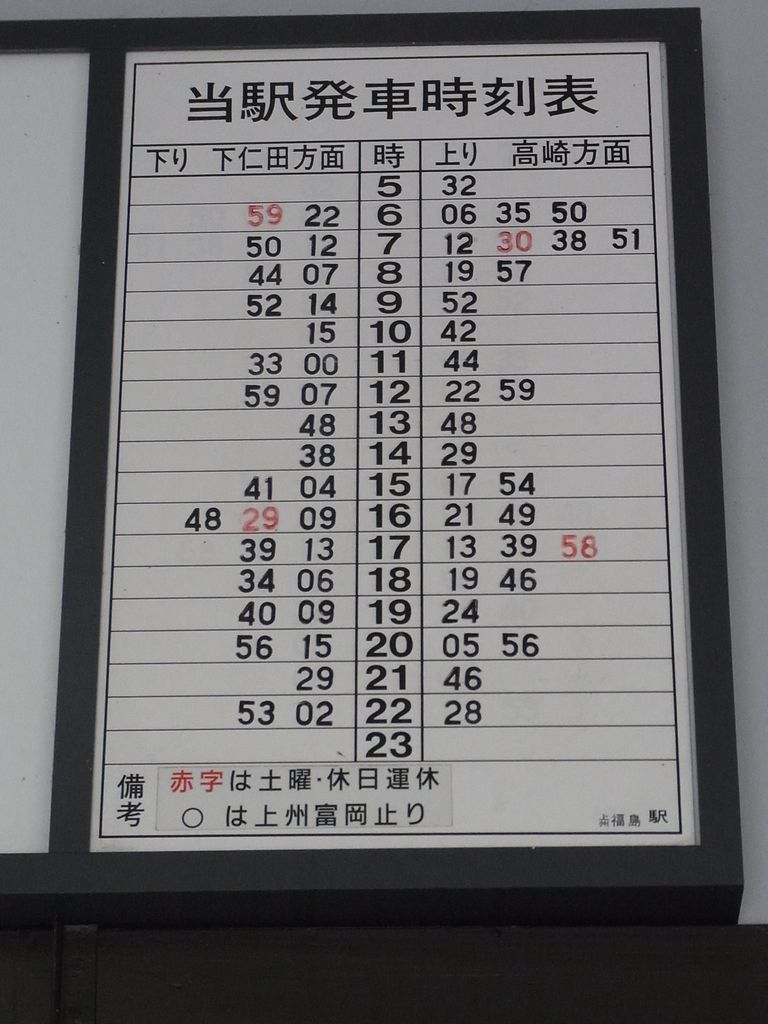 当駅発車時刻表
下り 下仁田方面 時 上り 高崎方面
5 32
59 22 6 06 35 50
50 12 7 12 30 38 51
44 07 8 19 57
52 14 9 52
15 10 42
33 00 11 44
59 07 12 22 59
48 13 48
38 14 29
41 04 15 17 54
48 29 09 16 21 49
39 13 17 13 39 58
34 06 18 19 46
40 09 19 24
56 15 20 05 56
29 21 46
53 02 22 28
23
備考 赤字は土曜・休日運休
○ は上州富岡止り
上州福島 駅